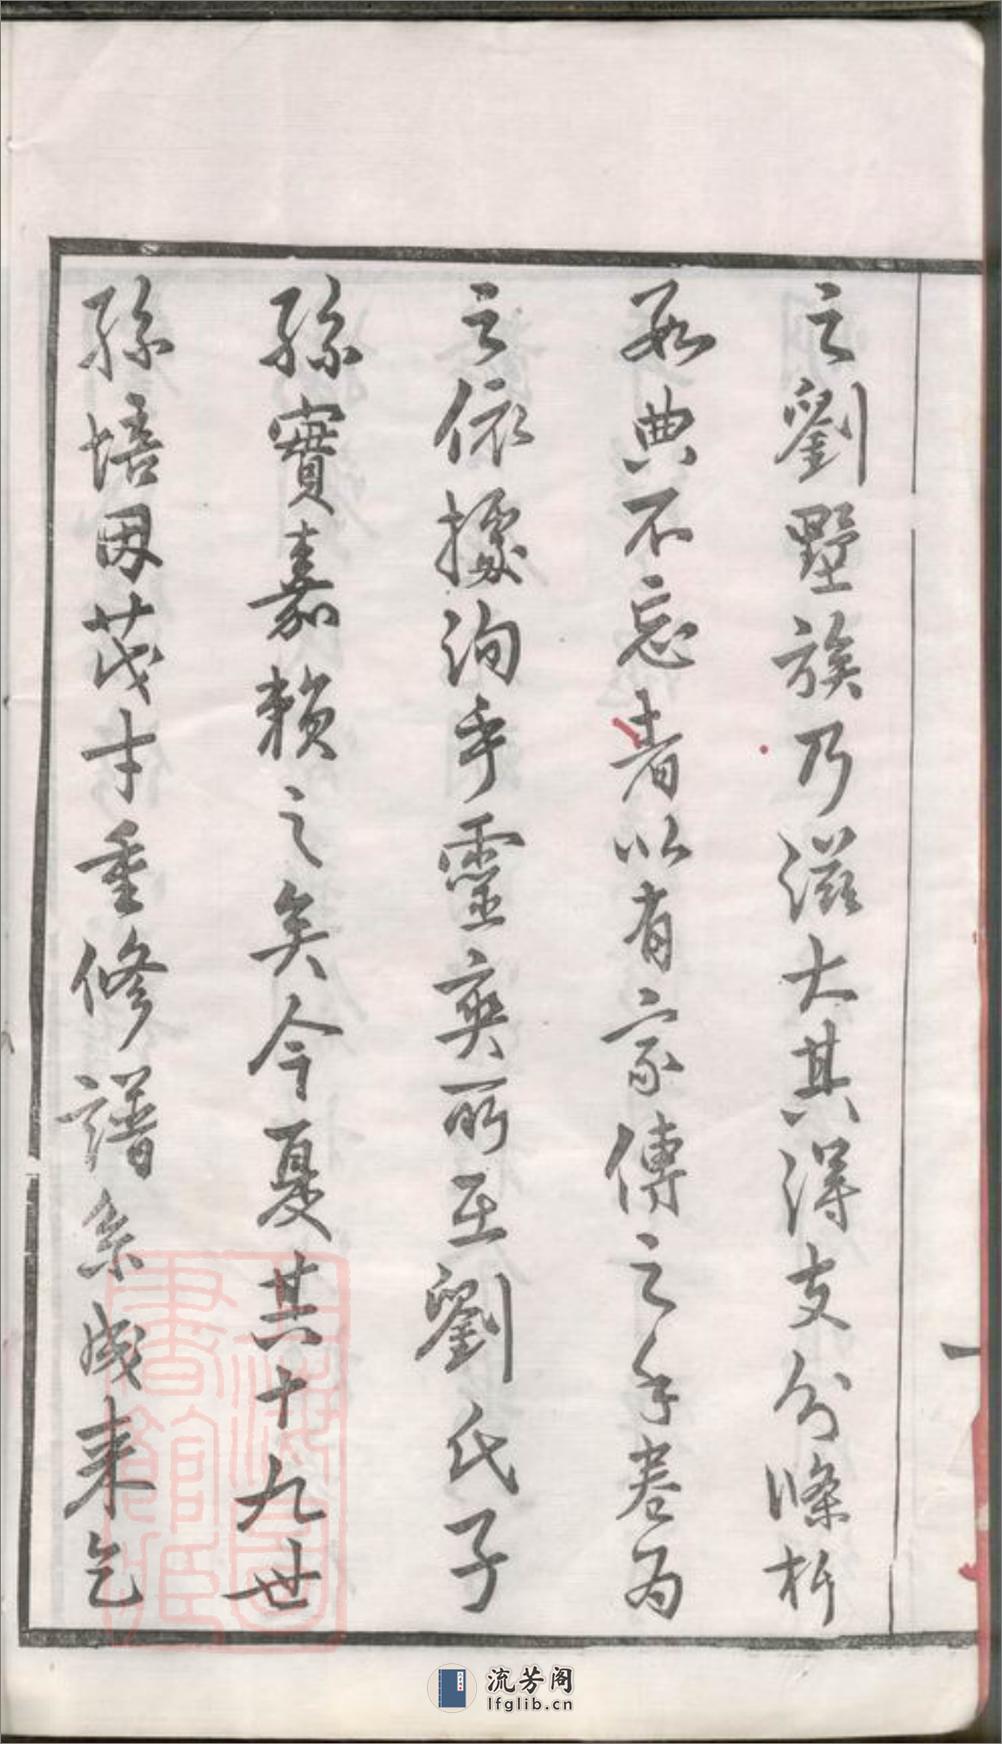 之劉墅族乃滋大其得支分條析
數典不忘者以有家傳之手卷為
之依據洵乎靈爽所至劉氏子
孫實嘉賴之矣今夏其十九世
孫培因茂才重修譜系成来乞
一
上海圖書館藏
流芳阁
lfglib.cn